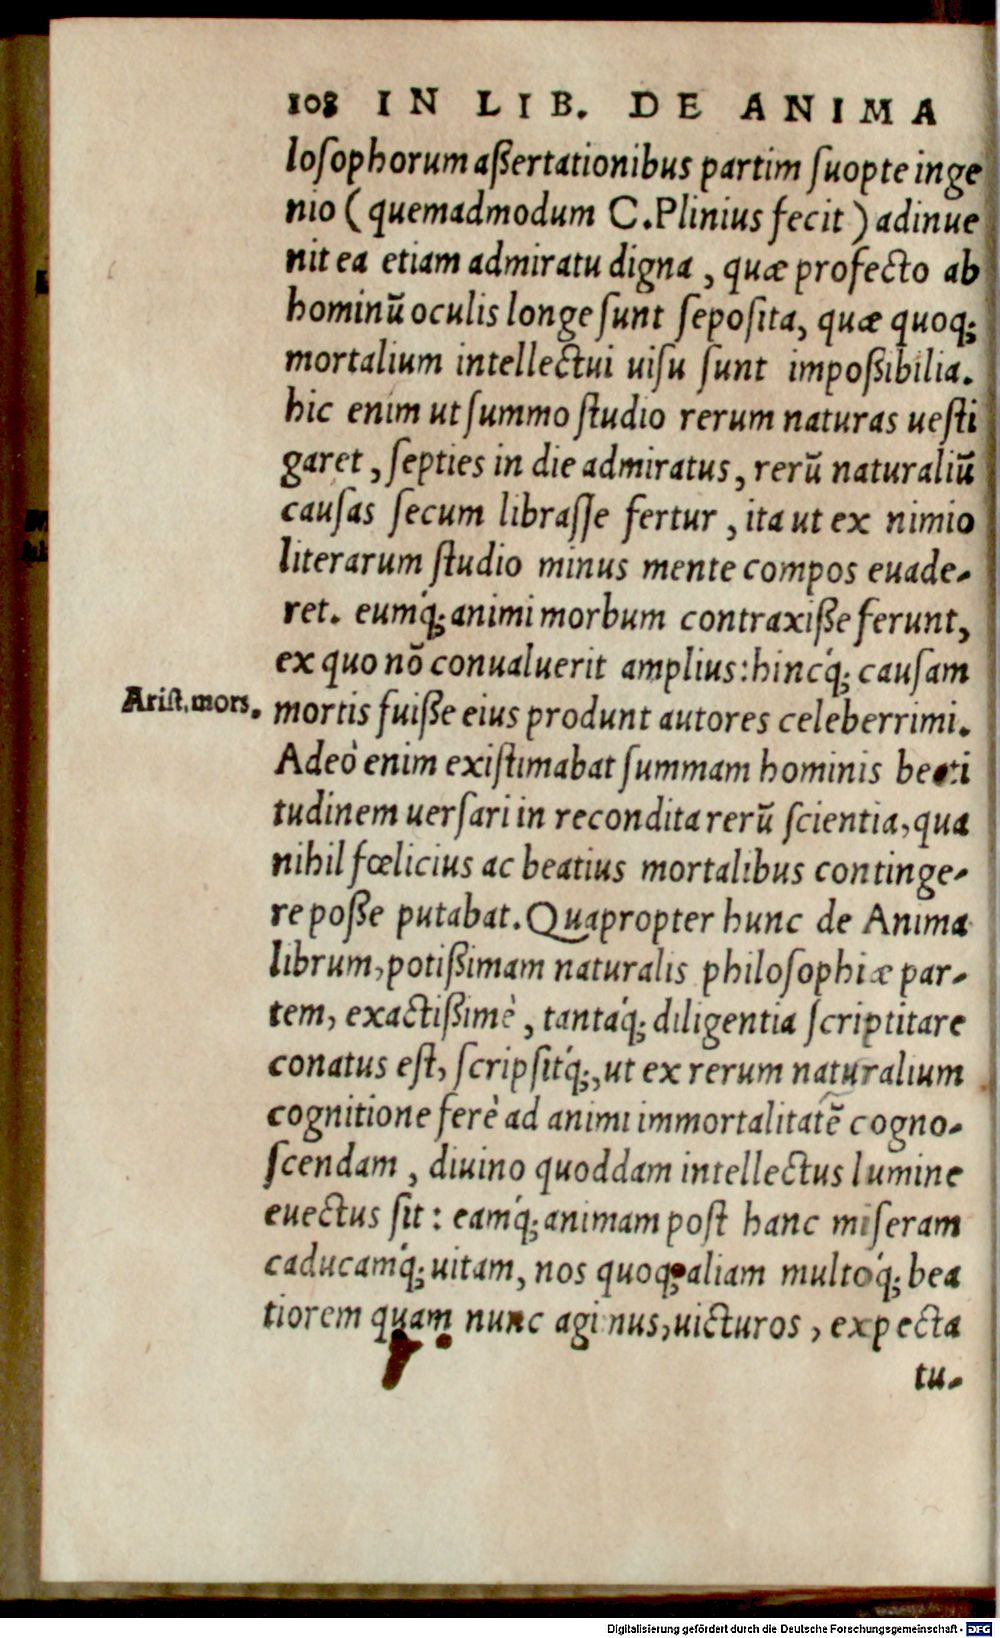 108 IN LIB. DE ANIMA
loſophorum aßertationibus partim ſuopte inge
nio ( quemadmodum C. Plinius fecit ) adinue
nit ea etiam admiratu digna , quæ profecto ab
hominū oculis longe ſunt ſepoſita, quæ quoq;
mortalium intellectui uiſu ſunt impoßibilia.
hic enim ut ſummo ſtudio rerum naturas ueſti
garet , ſepties in die admiratus , rerū naturaliū
cauſas ſecum libraſſe fertur , ita ut ex nimio
literarum ſtudio minus mente compos euade-
ret. eumq́; animi morbum contraxiße ferunt,
ex quo nō conualuerit amplius: hincq́; cauſam
Ariſt. mors.
mortis fuiße eius produnt autores celeberrimi.
Adeò enim exiſtimabat ſummam hominis beati
tudinem uerſari in recondita rerū ſcientia, qua
nihil fœlicius ac beatius mortalibus continge-
re poße putabat. Quapropter hunc de Anima
librum, potißimam naturalis philoſophiæ par-
tem, exactißimè , tantaq́; diligentia ſcriptitare
conatus eſt, ſcripſitq́;, ut ex rerum naturalium
cognitione ferè ad animi immortalitatē cogno-
ſcendam , diuino quoddam intellectus lumine
euectus ſit : eamq́; animam poſt hanc miſeram
caducamq́; uitam, nos quoq; aliam multoq́; bea
tiorem quam nunc agimus, uicturos , expecta
tu-
Digitalisierung gefördert durch die Deutsche Forschungsgemeinschaft - DFG